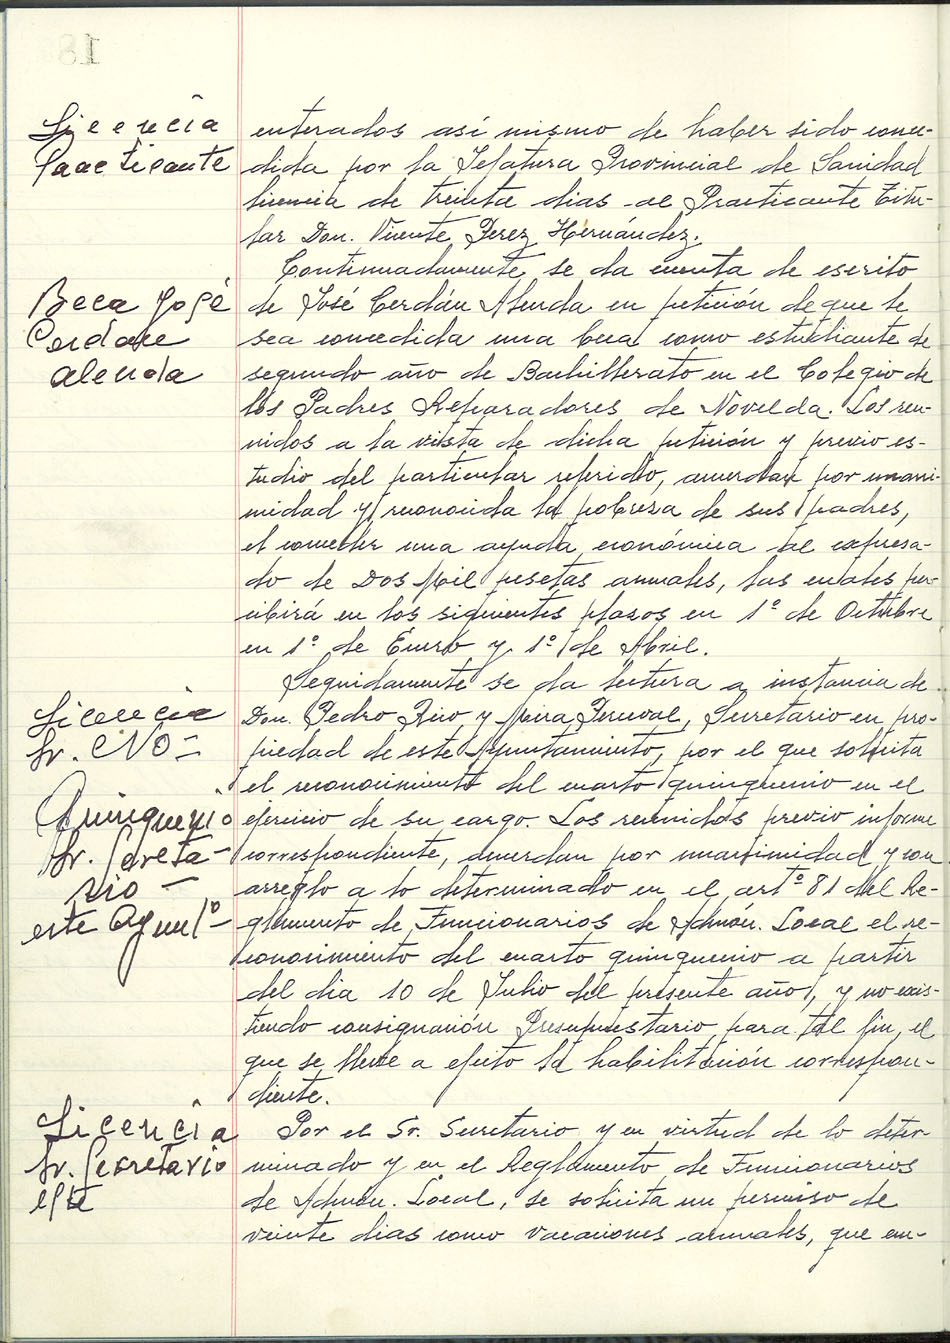 18
Licencia
Practicante
enterados así mismo de haber sido conce-
dida por la Jefatura Provincial de Sanidad
licencia de treinta dias al Practicante Titu-
lar Don. Vicente Perez Hernández.
Beca José
Cerdán
Alenda
Continuadamente se da cuenta de escrito
de José Cerdán Alenda en petición de que le
sea concedida una beca como estudiante de
segundo año de Bachillerato en el Colegio de
los Padres Reparadores de Novelda. Los reu-
nidos a la vista de dicha petición y previo es-
tudio del particular referido, acuerdan por unani-
midad y reconocida la pobreza de sus padres,
el conceder una ayuda económica al expresa-
do de Dos Mil pesetas anuales, las cuales per-
cibirá en los siguientes plazos en 1º de Octubre
en 1º de Enero y 1º de Abril.
Licencia
Sr.
Quinquenio
Sr. Secreta-
rio
este Ayuntº
Seguidamente se da lectura a instancia de
Don. Pedro Rico y Mira Perceval, Secretario en pro-
piedad de este Ayuntamiento, por el que solicita
el reconocimiento del cuarto quinquenio en el
ejercicio de su cargo. Los reunidos previo informe
correspondiente, acuerdan por unanimidad y con
arreglo a lo determinado en el artº 81 del Re-
glamento de Funcionarios de Admón. Local el re-
conocimiento del cuarto quinquenio a partir
del dia 10 de Julio del presente año, y no exis-
tiendo consignación Presupuestario para tal fin, el
que se lleve a efecto la habilitación correspon-
diente.
Licencia
Sr. Secretario
Por el Sr. Secretario y en virtud de lo deter-
minado y en el Reglamento de Funcionarios
de Admón. Local, se solicita un permiso de
veinte dias como vacaciones anuales, que en-